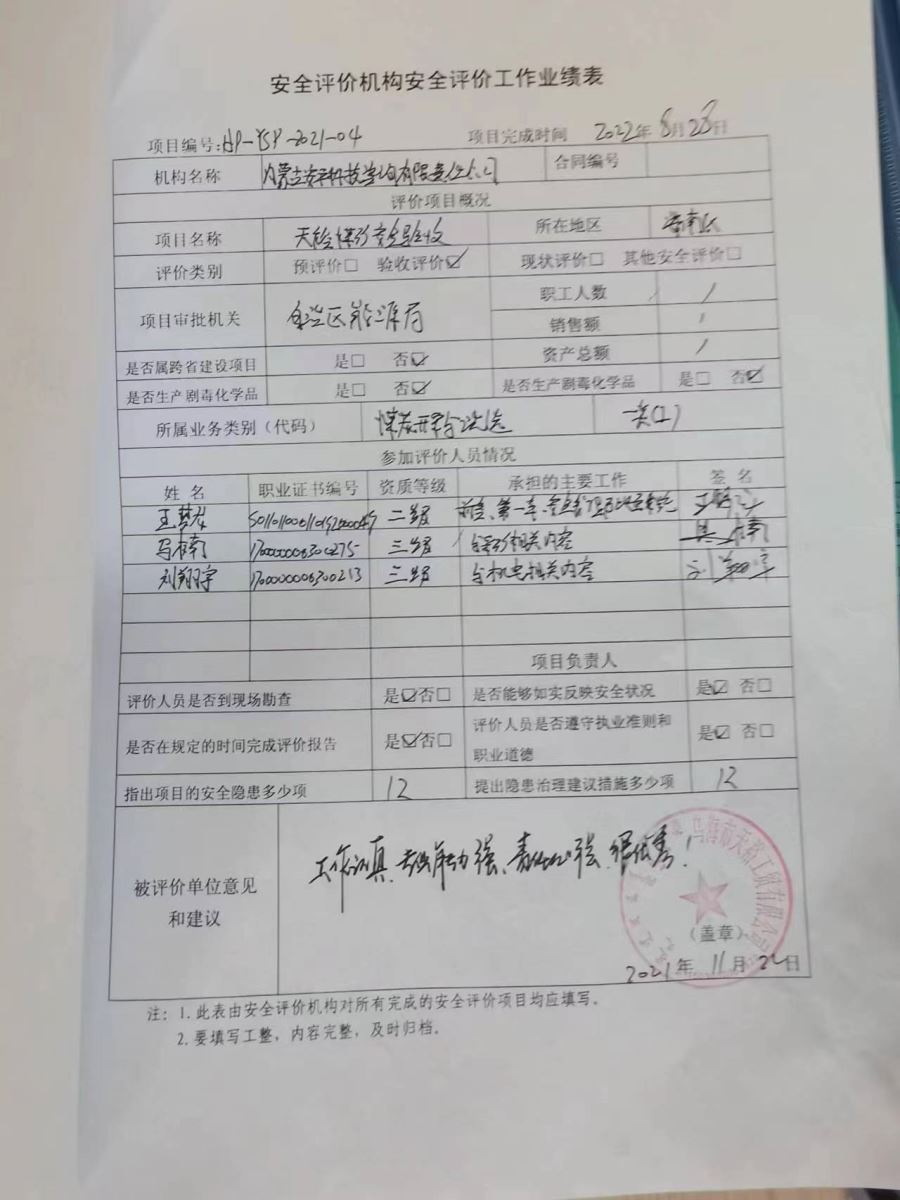 安全评价机构安全评价工作业绩表
项目编号:AP-YSP-2021-04 项目完成时间 2022年8月28日
机构名称 内蒙古安邦科技咨询有限责任公司 合同编号
评价项目概况
项目名称 天裕煤矿安全验收 所在地区 海南区
评价类别 预评价□ 验收评价☑ 现状评价□ 其他安全评价□
项目审批机关 自治区能源局 职工人数 /
销售额 /
是否属跨省建设项目 是□ 否☑ 资产总额 /
是否生产剧毒化学品 是□ 否☑ 是否生产剧毒化学品 是□ 否☑
所属业务类别（代码） 煤炭开采与洗选 一类(1)
参加评价人员情况
姓 名 职业证书编号 资质等级 承担的主要工作 签 名
王梦 二级 前言、第一章、
马楠 1700000006300275 三级 全部相关内容
刘翔宇 1700000006300213 三级 全机电相关内容 刘翔宇
项目负责人
评价人员是否到现场勘查 是☑否□ 是否能够如实反映安全状况 是☑ 否□
是否在规定的时间完成评价报告 是☑否□ 评价人员是否遵守执业准则和
职业道德 是☑ 否□
指出项目的安全隐患多少项 12 提出隐患治理建议措施多少项 12
被评价单位意见
和建议
工作认真、专业能力强、责任心强、很优秀！
（盖章）
2021年 11月 22日
注：1.此表由安全评价机构对所有完成的安全评价项目均应填写。
2.要填写工整，内容完整，及时归档。